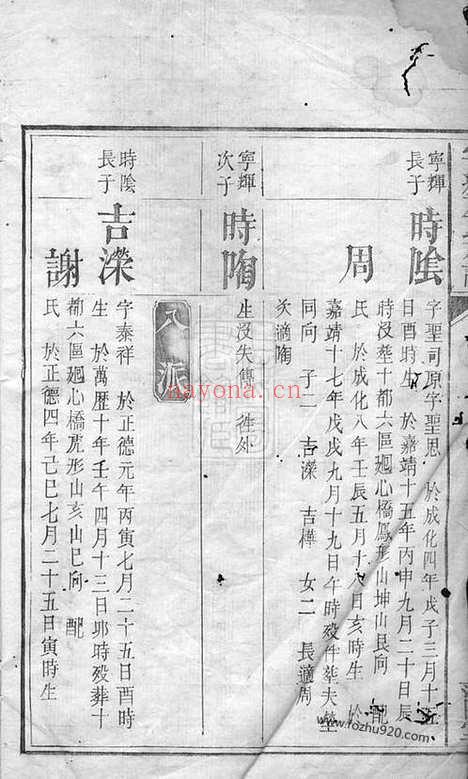 寧輝
長子
時陰
字聖司原字聖思 於成化四年戊子三月十五
日酉時生 於嘉靖十五年丙申九月二十日辰
時没塟十都六區廻心橋鳳形山坤山艮向 配
周
氏 於成化八年壬辰五月十八日亥時生 於
嘉靖十七年戊戌九月十九日午時殁件塟夫塋
同向 子二 吉濚 吉樺 女二 長適周
次適陶
寧輝
次子
時陶
生没失雋 徃外
八派
時陰
長子
吉濚
字泰祥 於正德元年丙寅七月二十五日酉時
生 於萬歴十年壬午四月十三日卯時殁葬十
都六區廻心橋虎形山亥山巳向 配
謝
氏 於正德四年己巳七月二十五日寅時生
nayona.cn
www.fozhu920.com